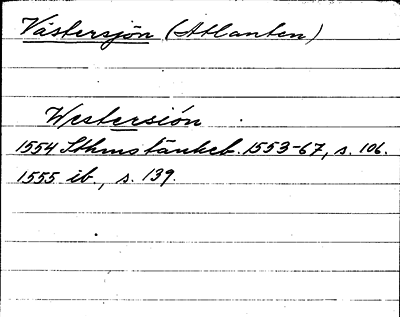 Västersjön (Atlanten)
Westersión
1554 Sthms tänkeb. 1553-67, s. 106.
1555 ib., s. 139.